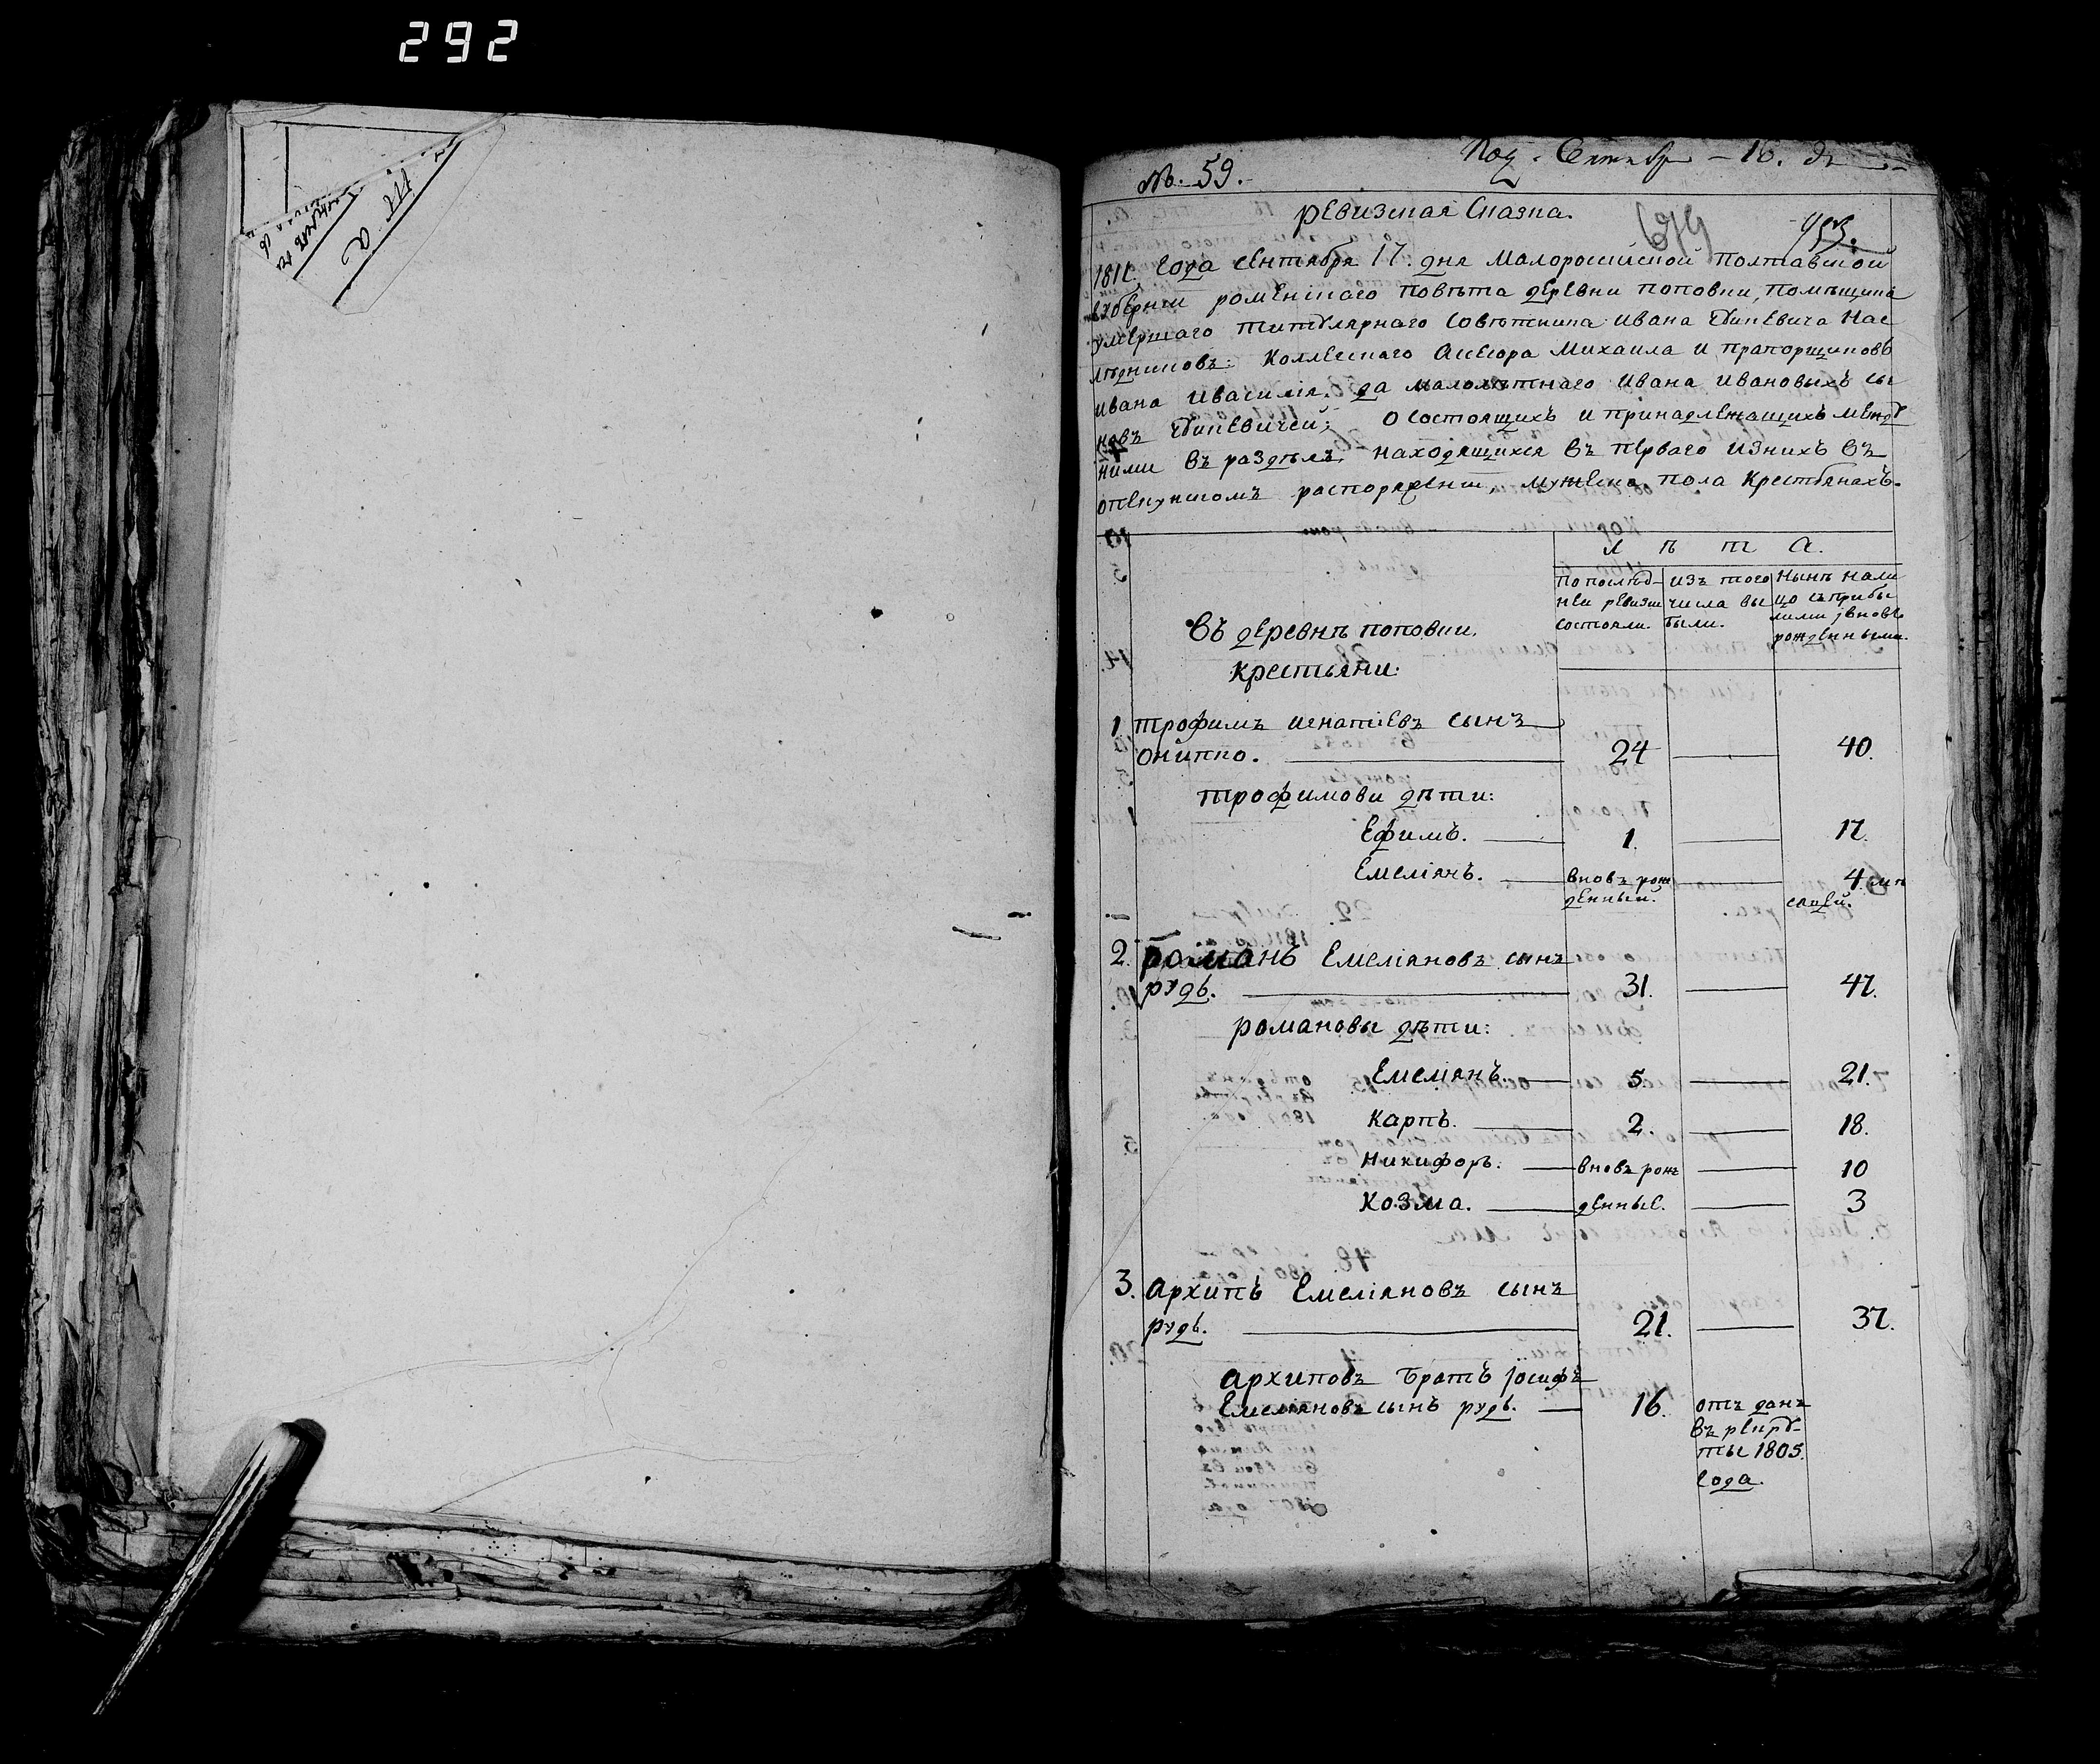 292
№. 59.
Ревизкая Сказка.
1811. Года сентября 17. дня Малоросийской Полтавской
Губернии роменского Повѣта деревни поповки, помѣщика
умершаго титулярнаго Совѣтника Ивана Нас
лѣдниковъ: Коллегскаго Ассесора Михаила и прапорщиковъ
ивана иВасилія, да малолѣтнаго ивана ивановыхъ сы
новъ О состоящихъ и принадлежащихъ между
ними въ раздѣлъ, находящихся въ перваго изнихъ въ
опекунскомъ распоряженіи, мужеска пола Крестьянахъ.
Л ѣ т А.
По послѣд-
ней ревизіи
состояли.
изъ того
числа вы
были.
Нынѣ нали
цо съ прибы
лими и вновь
рожденными.
Въ деревнѣ поповки,
крестьяни:
1 трофимъ игнатіевъ сынъ
Онипко. 24 40.
трофимови дѣти:
Ефимъ. 1. 17.
Емеліянъ. вновъ рож 4 мѣ
денный. сяцей.
2. романъ Емеліяновъ сынъ
рудь. 31. 47.
романовы дѣти:
Емеліянъ. 5. 21.
Карпъ. 2. 18.
Никифоръ. вновъ рож 10
Козма. денные. 3
3. архипъ Емеліяновъ сынъ
рудь. 21. 37.
архиповъ братъ іосифъ
Емеліяновъ сынъ рудь. 16. отъ данъ
въ рекру-
ты 1805.
года.